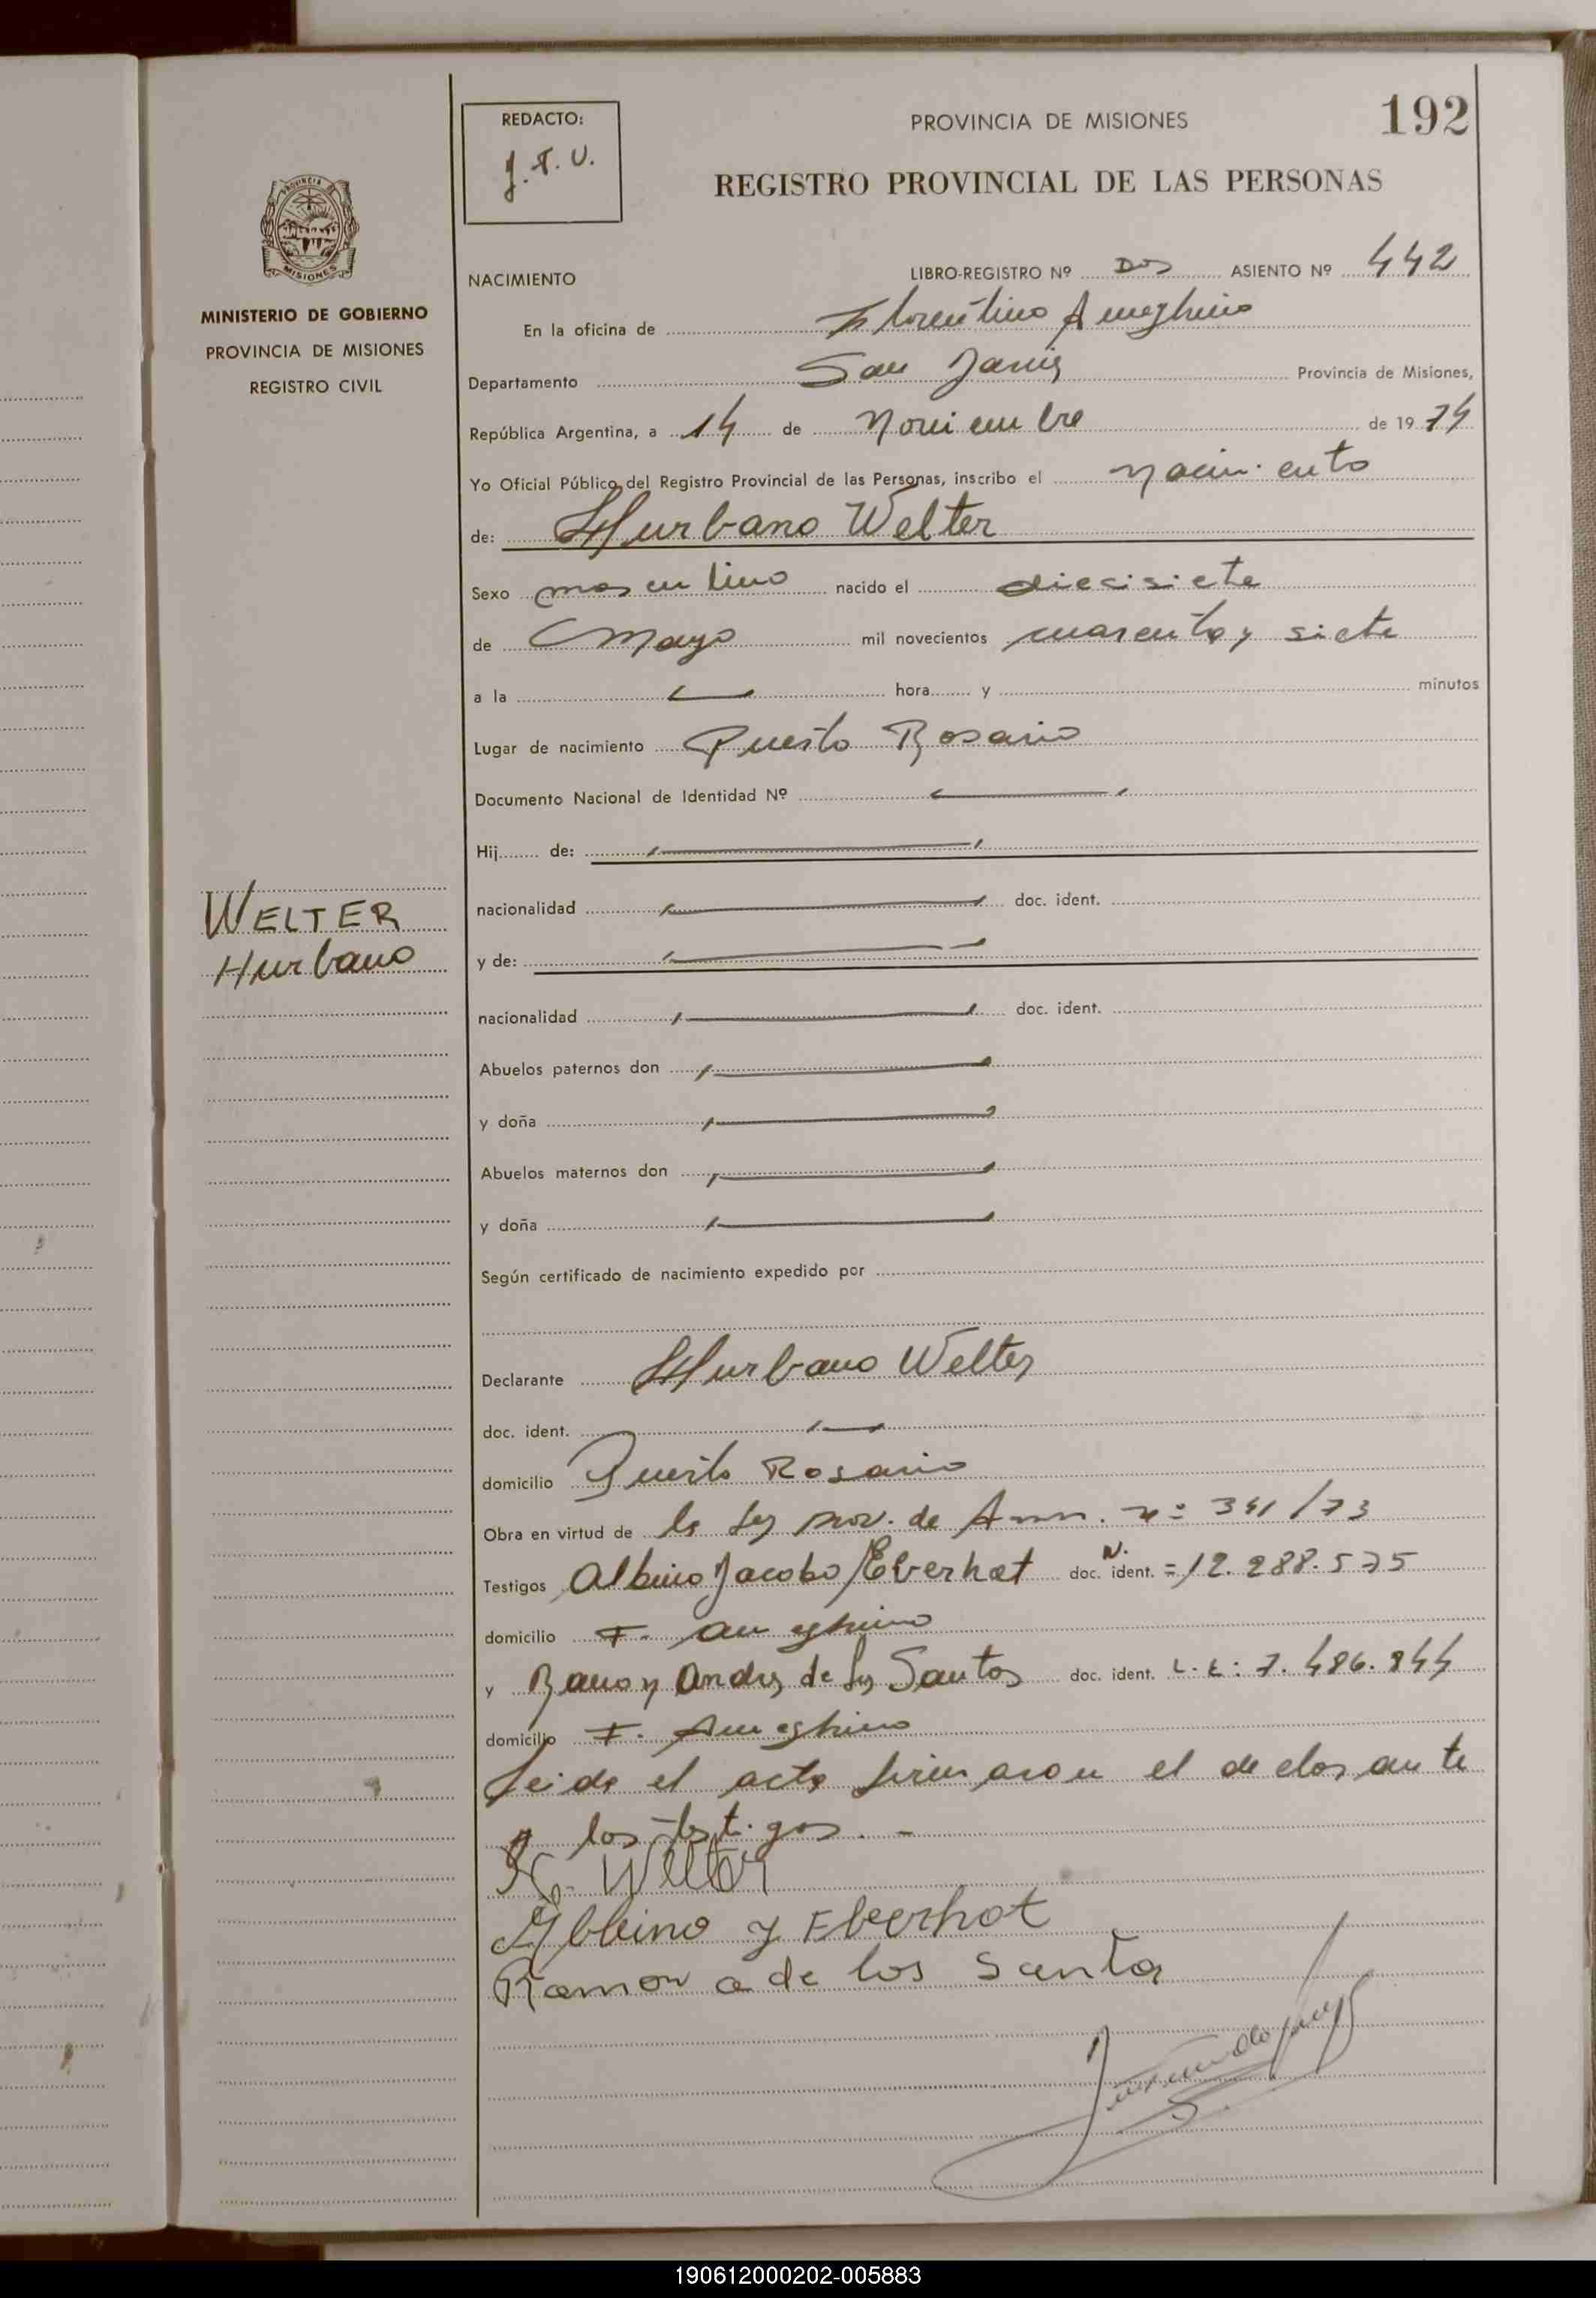 192
REDACTO:
J. T. V.
PROVINCIA DE MISIONES
REGISTRO PROVINCIAL DE LAS PERSONAS
PROVINCIA DE
MISIONES
MINISTERIO DE GOBIERNO
PROVINCIA DE MISIONES
REGISTRO CIVIL
WELTER
Hurbano
NACIMIENTO LIBRO-REGISTRO Nº Dos ASIENTO Nº 442
En la oficina de Florentino Ameghino
Departamento San Javier Provincia de Misiones,
República Argentina, a 14 de Noviembre de 1974
Yo Oficial Público del Registro Provincial de las Personas, inscribo el nacimiento
de: Hurbano Welter
Sexo masculino nacido el diecisiete
de Mayo mil novecientos cuarenta y siete
a la hora y minutos
Lugar de nacimiento Puerto Rosario
Documento Nacional de Identidad Nº
Hij de:
nacionalidad doc. ident.
y de:
nacionalidad doc. ident.
Abuelos paternos don
y doña
Abuelos maternos don
y doña
Según certificado de nacimiento expedido por
Declarante Hurbano Welter
doc. ident.
domicilio Puerto Rosario
Obra en virtud de la Ley prov. de Amn. nº 341/73
Testigos Albino Jacobo Eberhat doc. N. ident. = 12.288.575
domicilio F. Ameghino
y Ramon Andres de los Santos doc. ident. L.E: 7.486.844
domicilio F. Ameghino
Leida el acta firmaron el declarante
y los testigos. -
H. Welter
Albino J Eberhot
Ramon a de los Santos
190612000202-005883